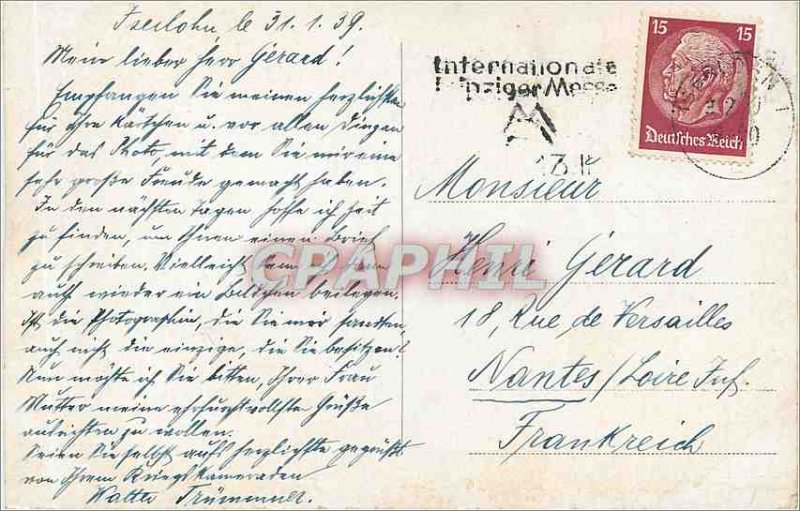 Iserlohn le 31.1.39.
Mein lieber Herr Gérard!
Empfangen Sie meinen herzlichsten
für Ihre Kärtchen u. vor allen Dingen
für das Photo, mit dem Sie mir eine
sehr große Freude gemacht haben.
In den nächsten Tagen hoffe ich Zeit
zu finden, um Ihnen einen Brief
zu schreiben. Vielleicht kann ich dann
auch wieder ein Bildchen beilegen.
Ist die Photographie, die Sie mir sandten,
auch nicht die einzige, die Sie besitzen?
Nun möchte ich Sie bitten, Ihrer Frau
Mutter meine ehrfurchtvollste Grüße
ausrichten zu wollen.
Seien Sie selbst aufs herzlichste gegrüßt
von Ihrem Kriegskameraden
Walter
Internationale
Leipziger Messe
15 15
Deutsches Reich
CPAPHIL
Monsieur
Henri Gérard
18, Rue de Versailles
Nantes / Loire Inf.
Frankreich